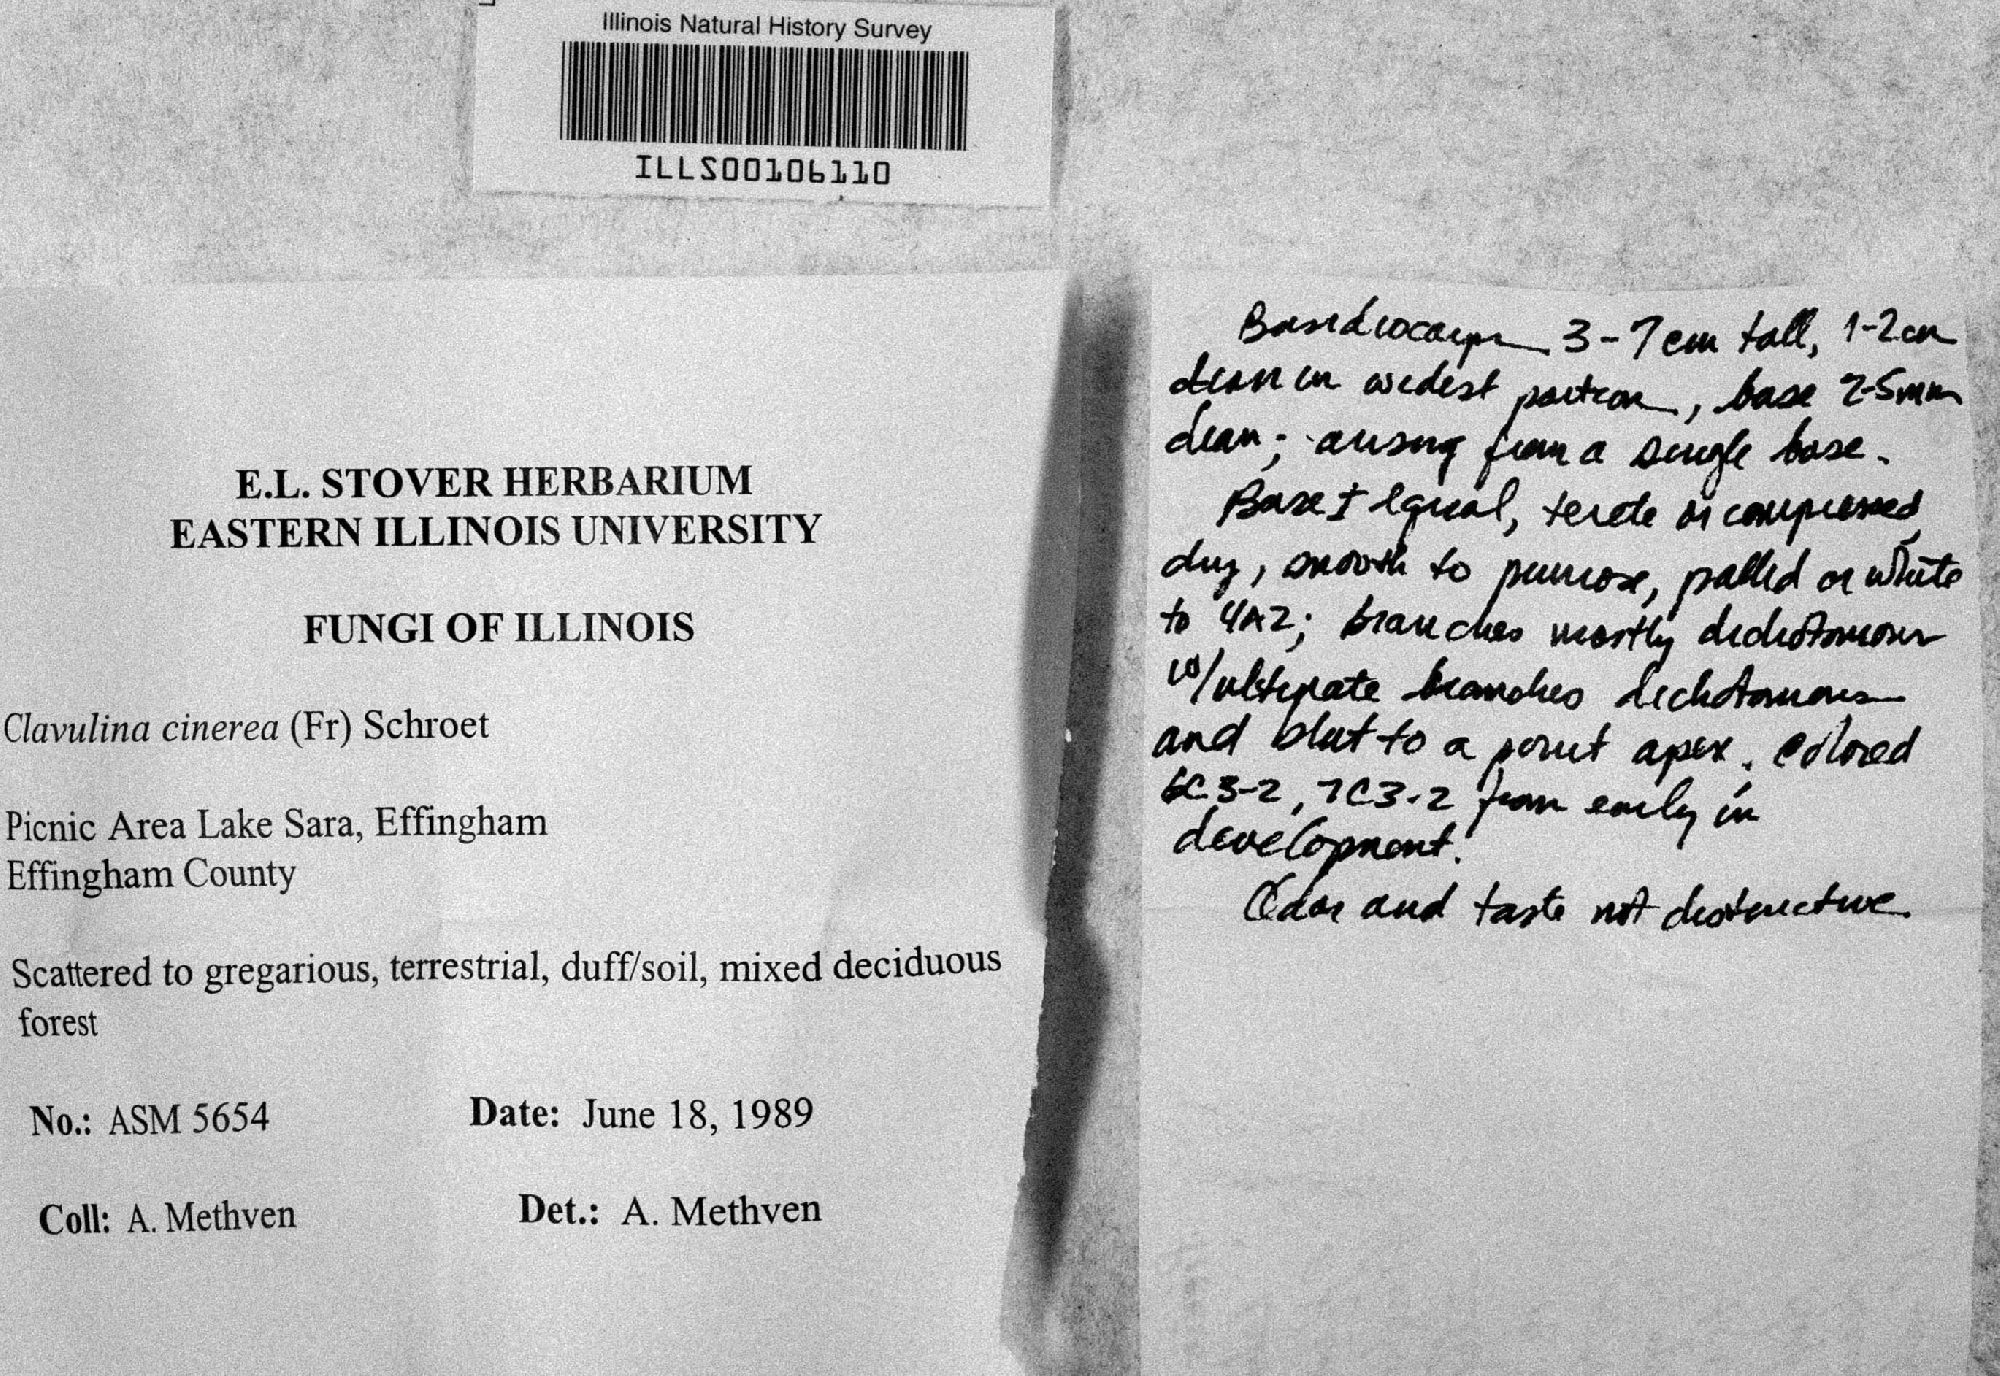 Illinois Natural History Survey
ILLS00106110
E.L. STOVER HERBARIUM
EASTERN ILLINOIS UNIVERSITY
FUNGI OF ILLINOIS
Clavulina cinerea (Fr) Schroet
Picnic Area Lake Sara, Effingham
Effingham County
Scattered to gregarious, terrestrial, duff/soil, mixed deciduous
forest
No.: ASM 5654 Date: June 18, 1989
Coll: A. Methven Det.: A. Methven
Basidiocarps 3-7 cm tall, 1-2 cm
diam in widest portion, base 2-5mm
diam; arising from a single base.
Base ± equal, terete or compressed,
dry, smooth to pruinose, pallid or white
to 4A2; branches mostly dichotomous
w/ultimate branches dichotomous
and blut to a point apex. Colored
6C3-2, 7C3-2 from early in
development.
Odor and taste not distinctive.